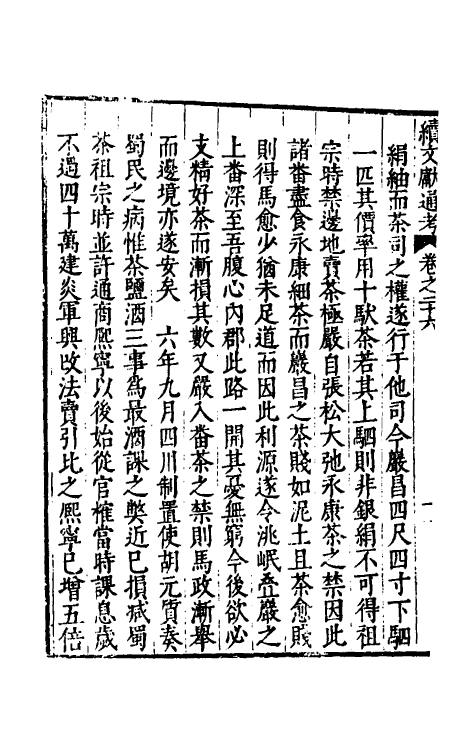 續文獻通考 卷之二十六
絹紬而茶司之權遂行于他司今嚴昌四尺四寸下駟
一匹其價率用十䭾茶若其上駟則非銀絹不可得祖
宗時禁邊地賣茶極嚴自張松大弛永康茶之禁因此
諸畨盡食永康細茶而嚴昌之茶賤如泥土且茶愈賤
則得馬愈少猶未足道而因此利源遂令洮岷叠嚴之
上畨深至吾腹心内郡此路一開其憂無窮今後欲必
支精好茶而漸損其數又嚴入畨茶之禁則馬政漸舉
而邊境亦遂安矣 六年九月四川制置使胡元質奏
蜀民之病惟茶鹽酒三事爲最酒課之弊近已損減蜀
茶祖宗時並許通商熈寧以後始從官榷當時課息歲
不過四十萬建炎軍興改法賣引比之熈寧已增五倍